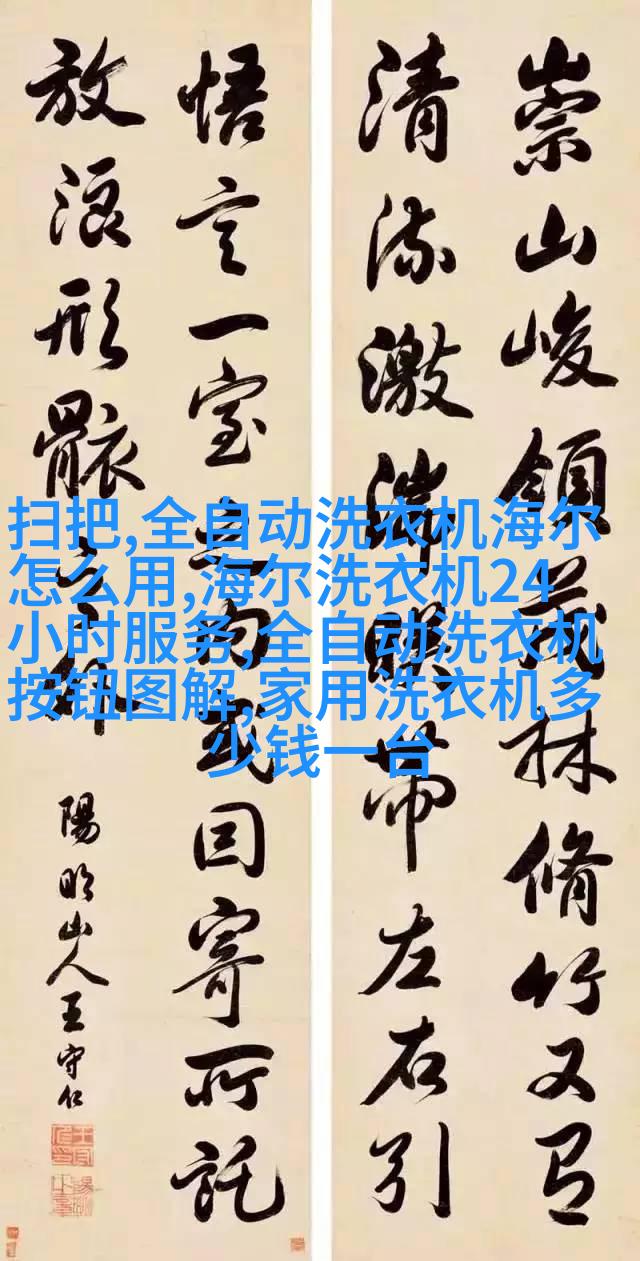 崇山峻領茂林脩竹又有
清流激湍暎帶左右引
悟言一室之内或因寄所託
放浪形骸之外
陽明山人王守仁
扫把,全自动洗衣机海尔
怎么用,海尔洗衣机24
小时服务,全自动洗衣机
按钮图解,家用洗衣机多
少钱一台